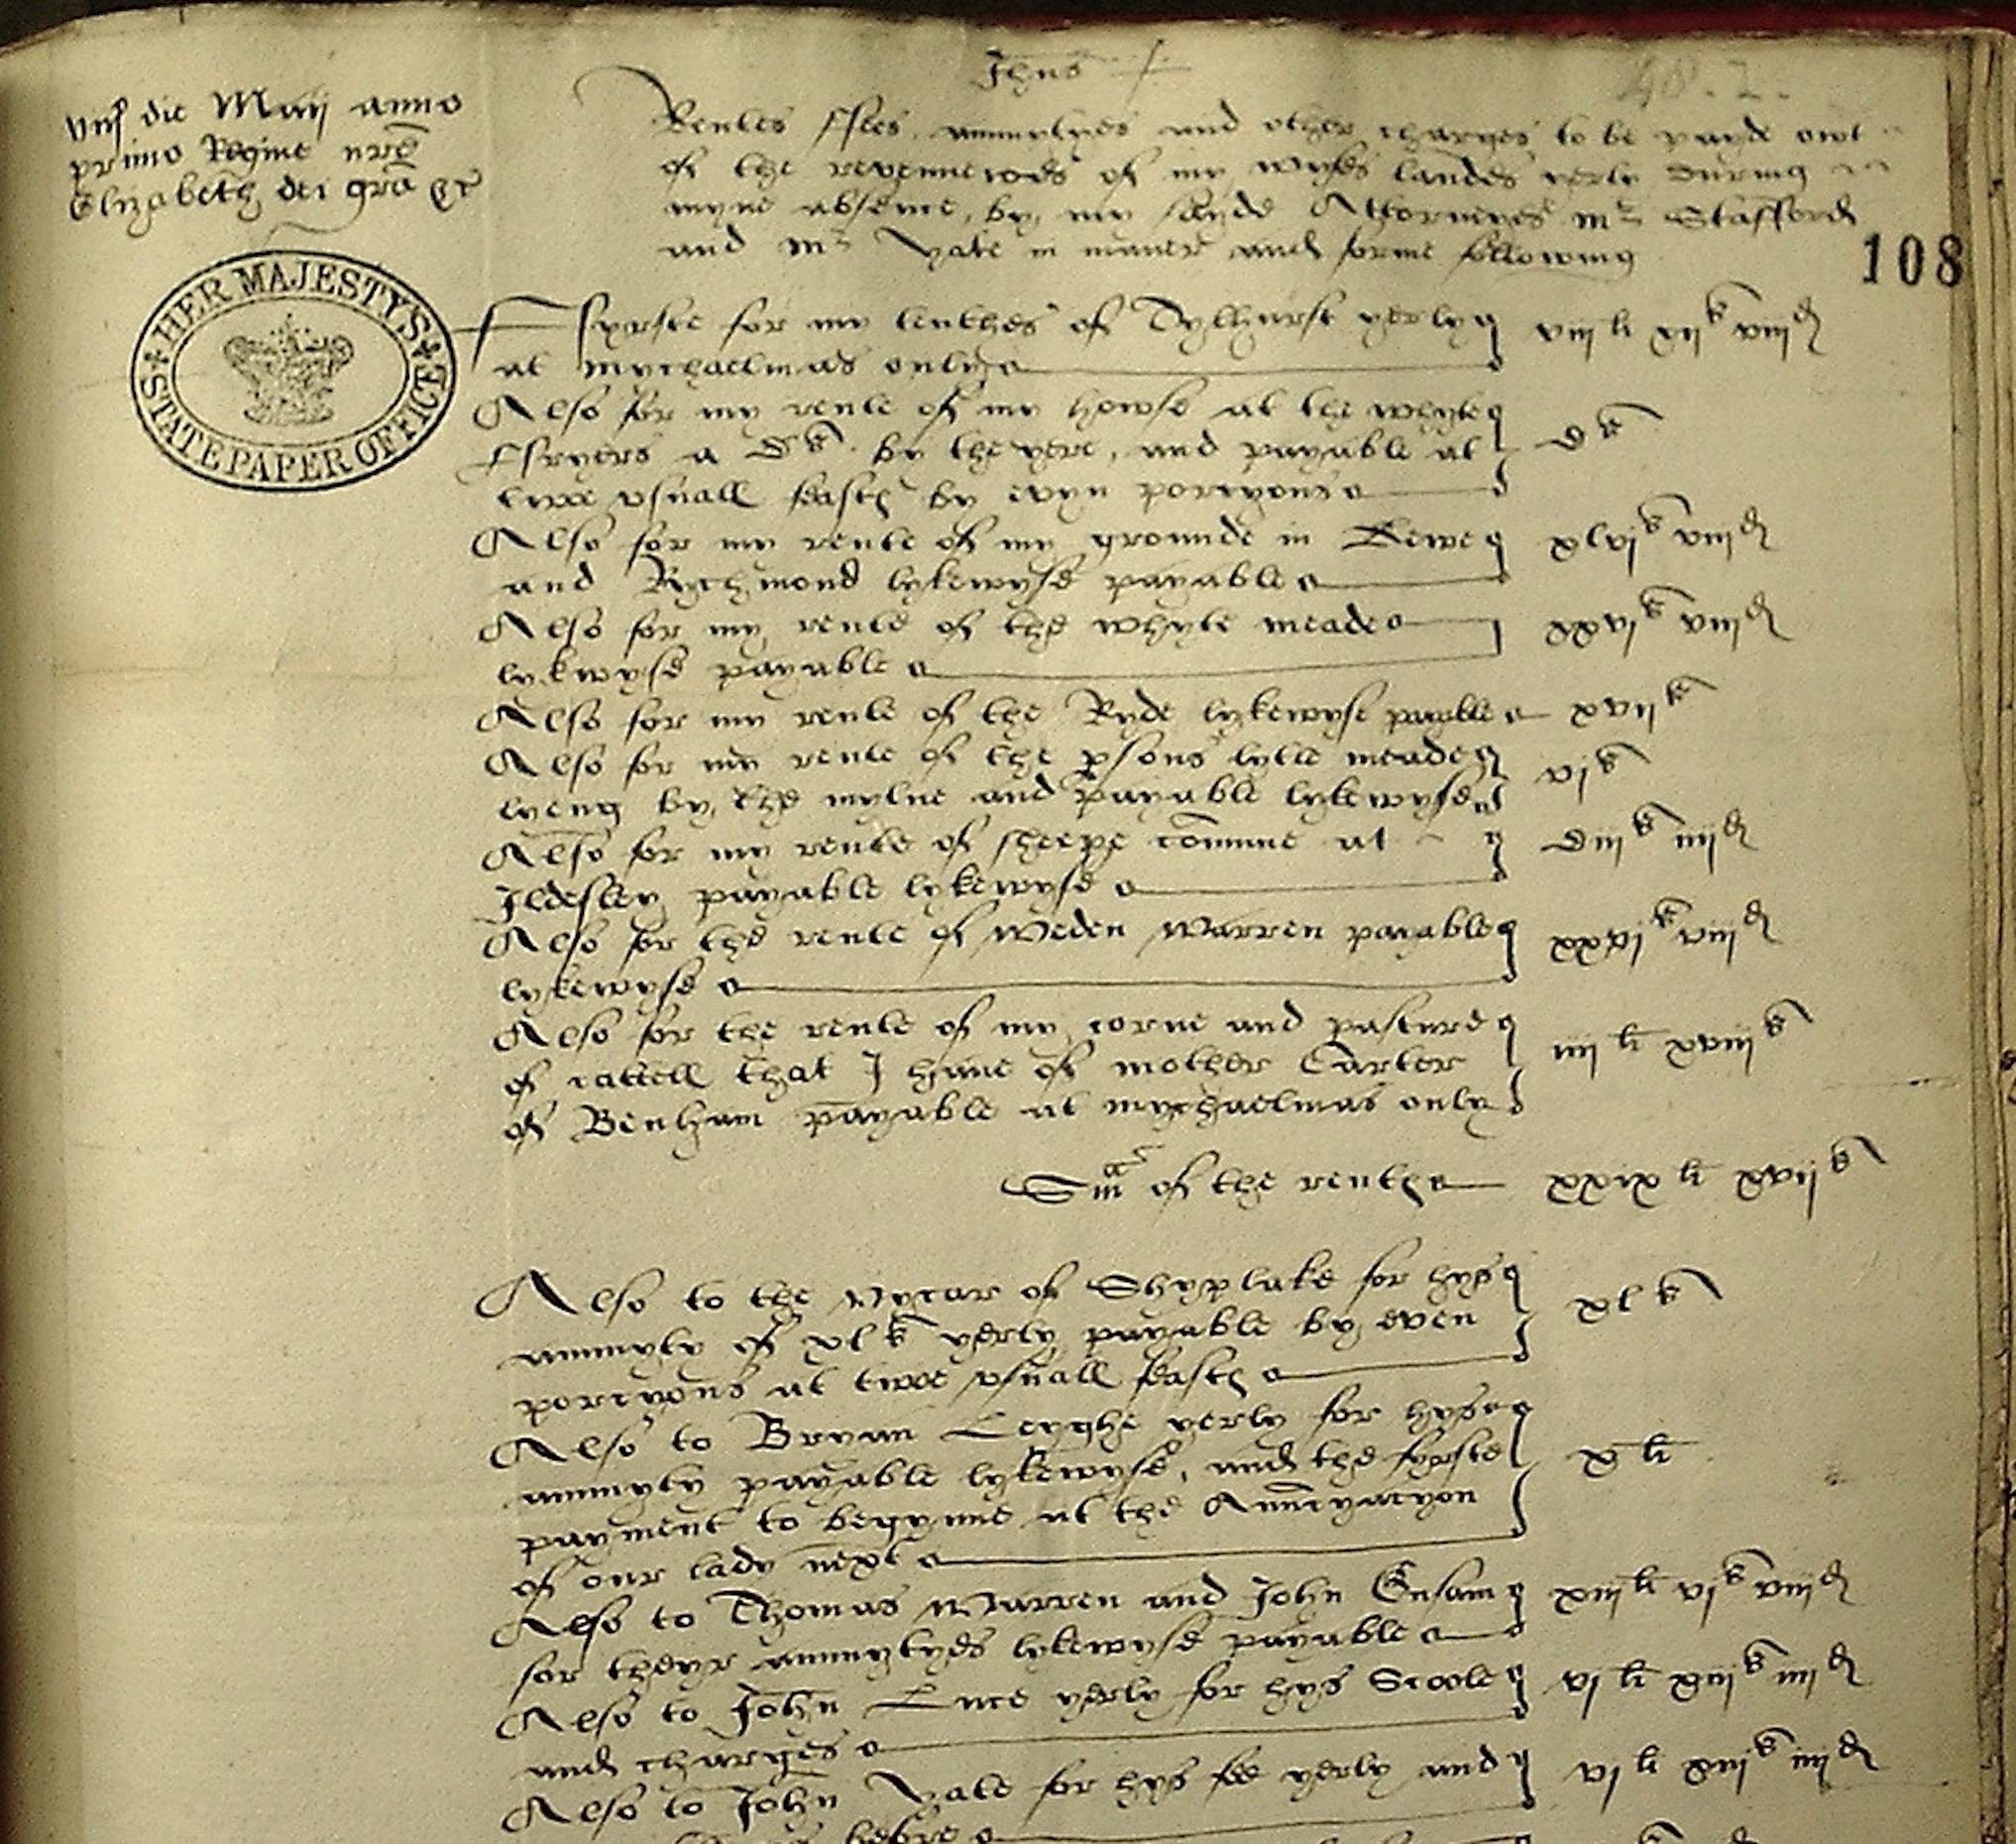 Jhus +
48. 2.
viijº die Maij anno
primo Regine nrē
Elizabeth dei grā &c
Rentes ffees annuytyes and other charges to be payde owt
of the revennewes of my wyfes landes yerly during
myne absence, by my sayde Attorneyes mr Stafford
and mr Yate in maner and forme following
108
HER MAJESTY'S STATE PAPER OFFICE
Fyrste for my tenthes of Tylhurst yerly
at mychaelmas only
viij li xijs viijd
Also for my rente of my howse at the whyte
ffryers a Cs by the yere, and payable at
twoe usuall feastes by evyn portyons
Cs
Also for my rente of my grounde in Kewe
and Rychmond lykewyse payable
xlvjs viijd
Also for my rente of the whyte meade
lykwyse payable
xxvjs viijd
Also for my rente of the Ryde lykewyse payble
xvijs
Also for my rente of the psons lytle meade
lyeng by the mylne and payable lykewyse
vjs
Also for my rente of sheepe cōmune at
Ildesley payable lykewyse
Ciijs iiijd
Also for the rente of Weden Warren payable
lykewyse
xxvjs viijd
Also for the rente of my corne and pasture
of cattell that I have of mother Carter
of Benham payable at mychaelmas only
iiij li xviijs
Sma of the rentes
xxix li xvijs
Also to the vycar of Shyplake for hys
annuyty of xls yerly payable by even
portyons at twoe usuall feastes
xls
Also to Bryan Leyghe yerly for hys
annuyty payable lykewyse, and the fyrste
payment to begynne at the Annūcyacyon
of our lady next
x li
Also to Thomas Warren and John Ensam
for theyr annuytyes lykewyse payable
xiij li vjs viijd
Also to John Luce yerly for hys Scoole
and charges
vj li xiijs iiijd
Also to John Yate for hys fee yerly and
vj li xiijs iiijd
before